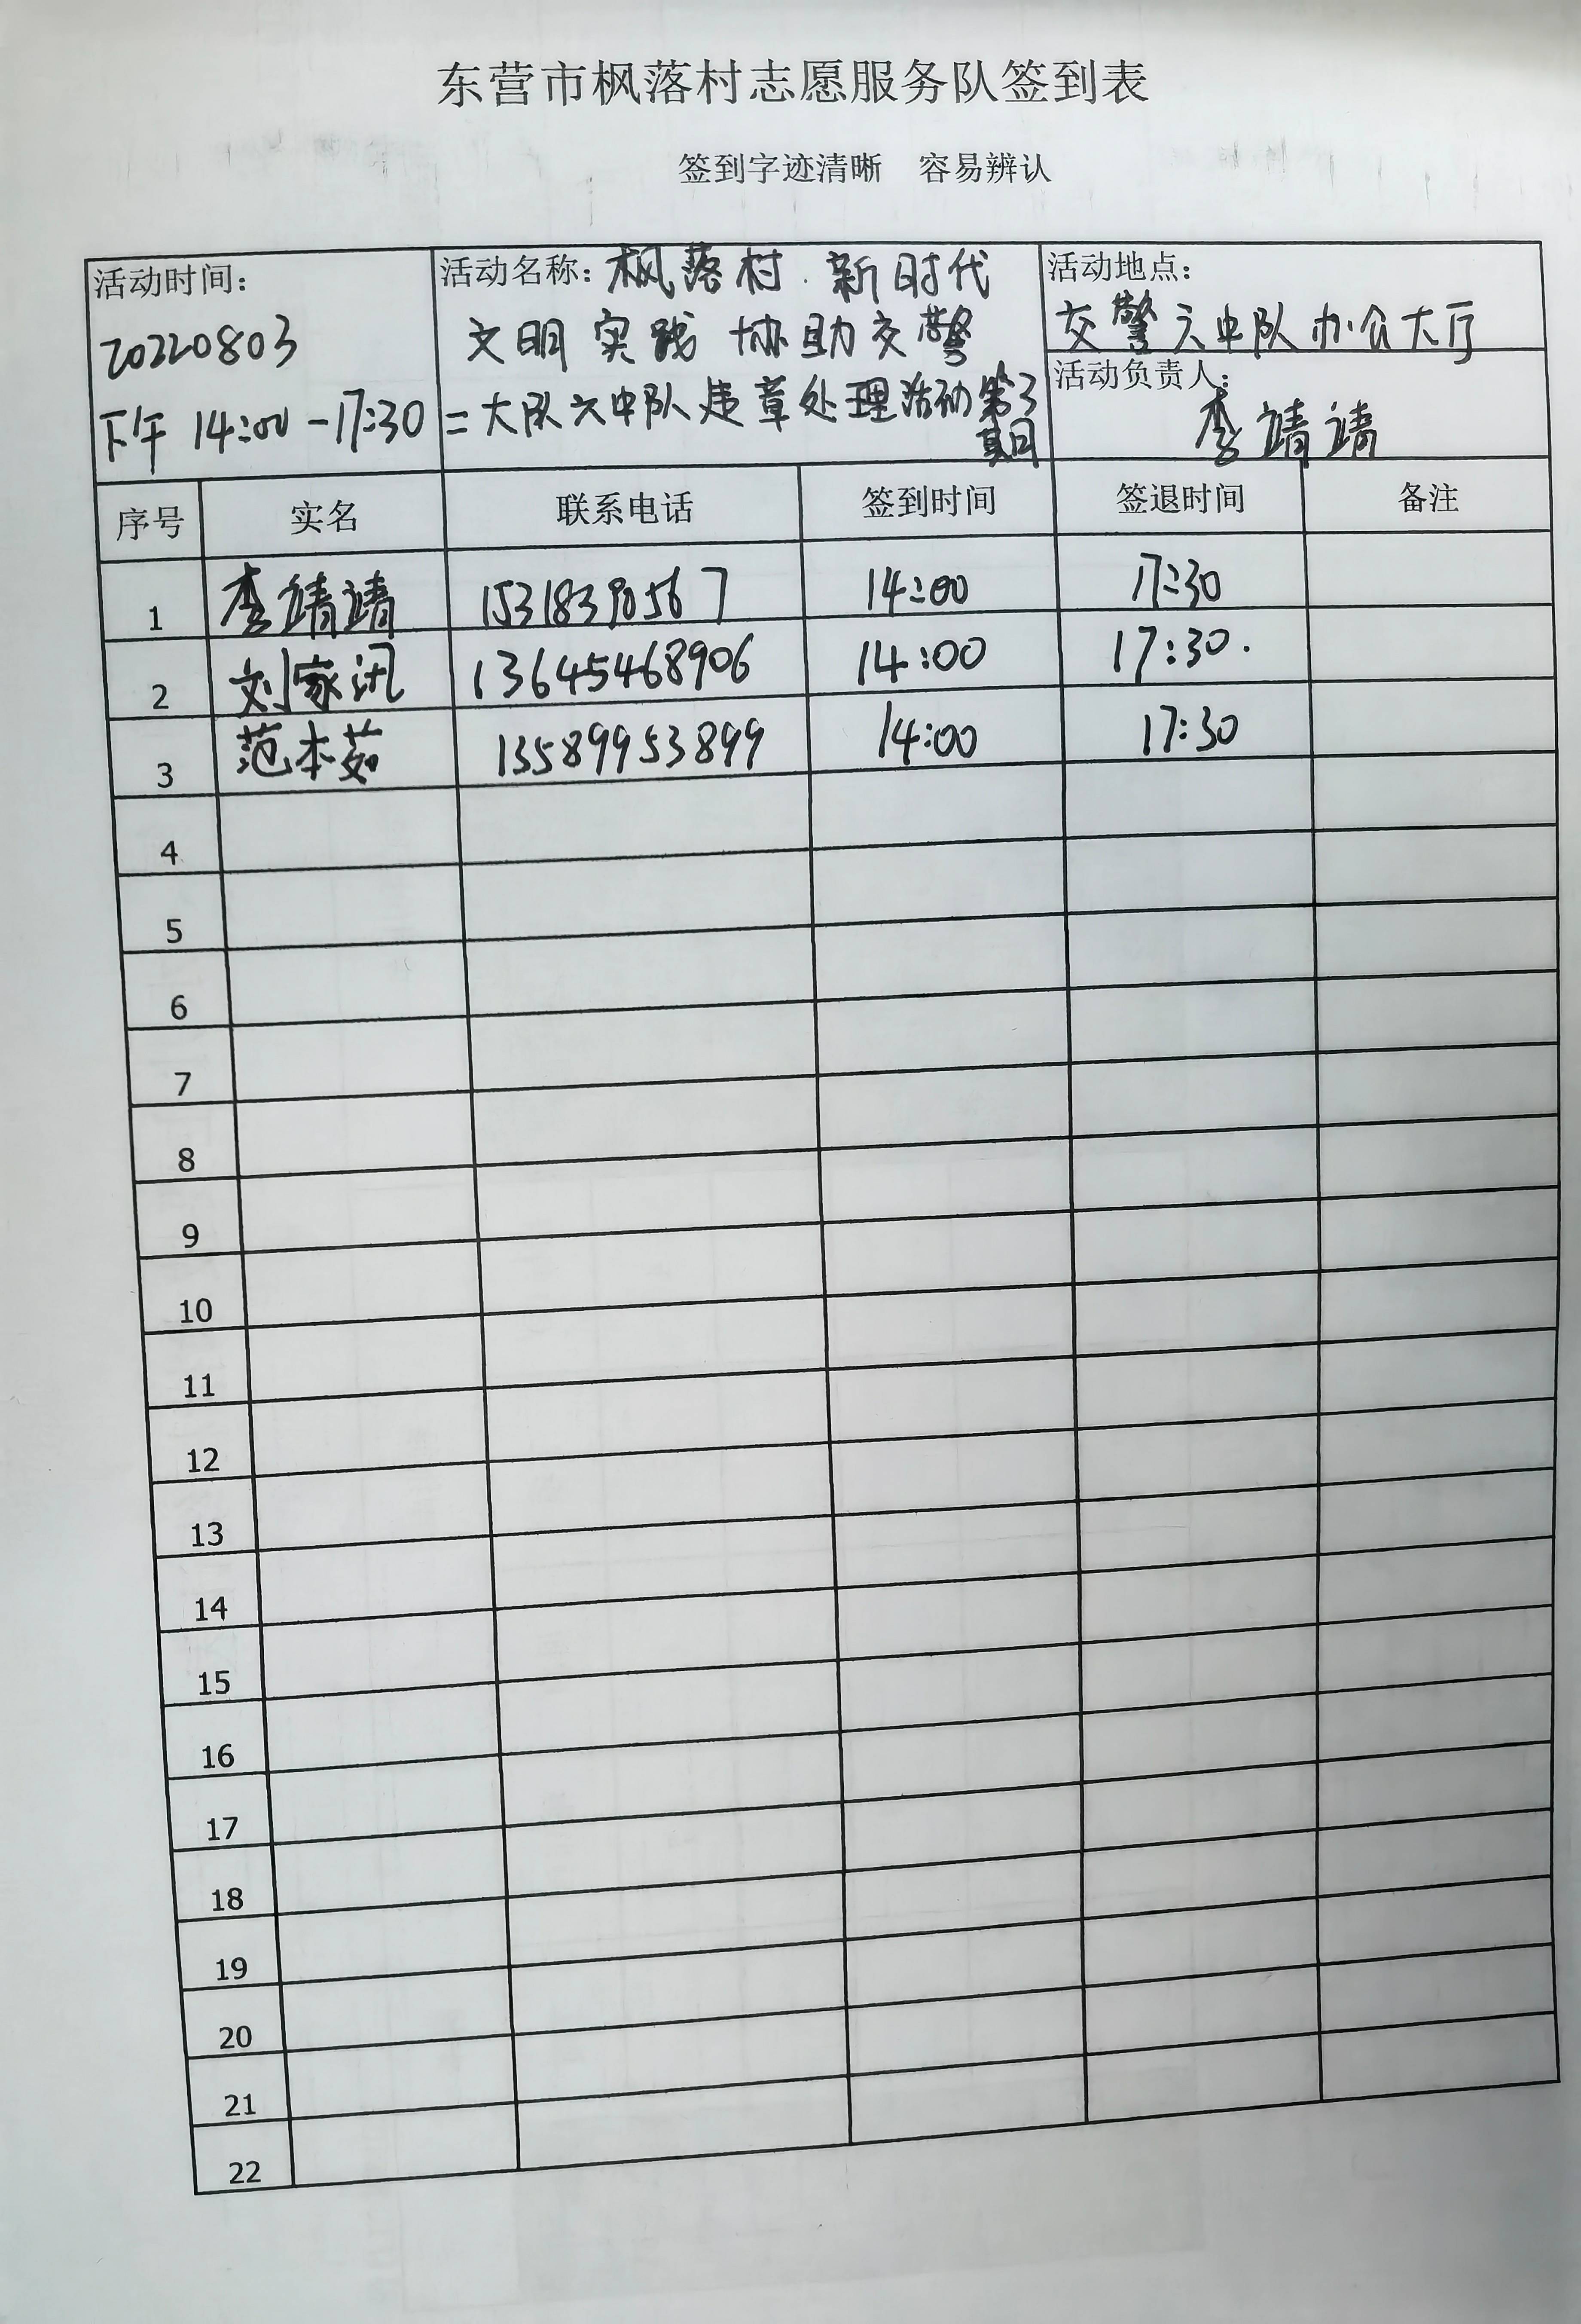 东营市枫落村志愿服务队签到表
签到字迹清晰 容易辨认
活动时间：
20220803
下午 14:00-17:30
活动名称：枫落村.新时代
文明实践 协助交警
二大队六中队违章处理活动第3
期
活动地点：
交警六中队办公大厅
活动负责人：
李靖靖
序号 实名 联系电话 签到时间 签退时间 备注
1 李靖靖 15318390567 14:00 17:30
2 刘家汛 13645468906 14:00 17:30.
3 范本茹 13589953899 14:00 17:30
4
5
6
7
8
9
10
11
12
13
14
15
16
17
18
19
20
21
22